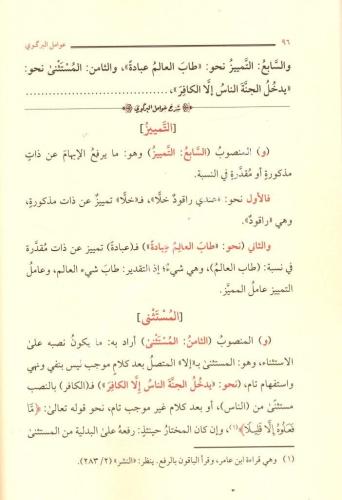 ٩٦ عوامل البركوي
والسابعُ: التَّمييزُ نحو: «طابَ العالمُ عبادةً»، والثامن: المُسْتَثْنىٰ نحو:
«يدخُلُ الجنَّةَ الناسُ إلَّا الكافِرَ»، ......................................
شرح عوامل البركوي
[التَّمييزُ]
(و) المنصوبُ (السَّابعُ: التَّمييزُ) وهو: ما يرفعُ الإبهامَ عن ذاتٍ
مذكورةٍ أو مُقدَّرةٍ في النسبة.
فالأول نحو: «عندي راقودٌ خلًّا»، فـ«خلًّا» تمييزٌ عن ذاتٍ مذكورةٍ،
وهي «راقودٌ».
والثاني (نحو: «طابَ العالِمُ عِبادةً») فـ(عبادةً) تمييز عن ذات مقدَّرة
في نسبة: (طابَ العالمُ)، وهي شيءٌ؛ إذ التقدير: طابَ شيء العالم، وعاملُ
التمييز عاملُ المميَّز.
[المُسْتَثْنىٰ]
(و) المنصوبُ (الثامنُ: المُسْتَثْنىٰ) أراد به: ما يكونُ نصبه علىٰ
الاستثناء، وهو: المستثنىٰ بـ«إلا» المتصلُ بعد كلامٍ موجب ليس بنفي ونهي
واستفهام تام، (نحو: «يدخلُ الجنَّةَ الناسُ إلَّا الكافرَ») فـ(الكافر) بالنصب
مستثنىٰ من (الناس)، أو بعد كلام غير موجب تام، نحو قوله تعالىٰ: ﴿مَّا
فَعَلُوهُ إِلَّا قَلِيلًا﴾(١)، وإن كان المختارُ حينئذٍ: رفعهُ علىٰ البدلية من المستثنىٰ
(١) وهي قراءة ابن عامر، وقرأ الباقون بالرفع. ينظر: «النشر» (٢/ ٢٨٣)